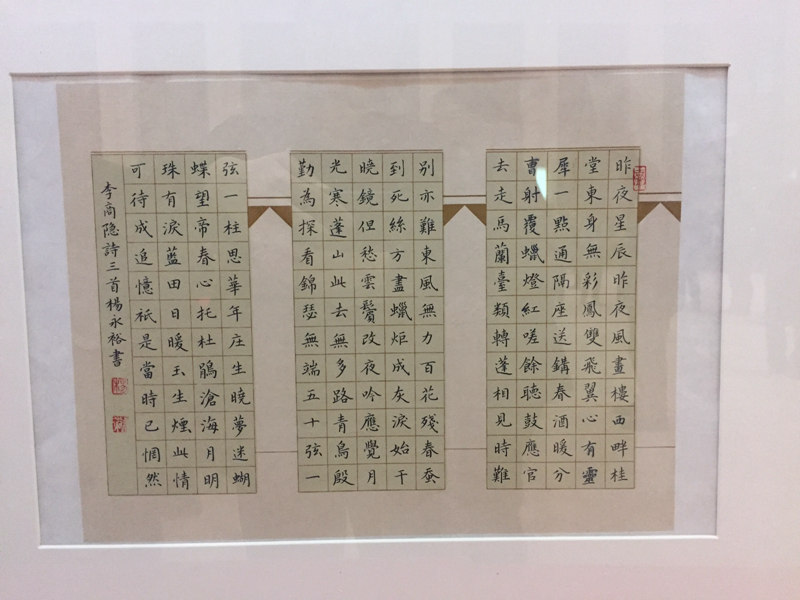 昨夜星辰昨夜風畫樓西畔桂
堂東身無彩鳳雙飛翼心有靈
犀一點通隔座送鉤春酒暖分
曹射覆蠟燈紅嗟餘聽鼓應官
去走馬蘭臺類轉蓬相見時難
別亦難東風無力百花殘春蚕
到死絲方盡蠟炬成灰淚始干
曉鏡但愁雲鬢改夜吟應覺月
光寒蓬山此去無多路青鳥殷
勤為探看錦瑟無端五十弦一
弦一柱思華年庄生曉夢迷蝴
蝶望帝春心托杜鵑滄海月明
珠有淚藍田日暖玉生煙此情
可待成追憶祇是當時已惘然
李商隐詩三首楊永裕書